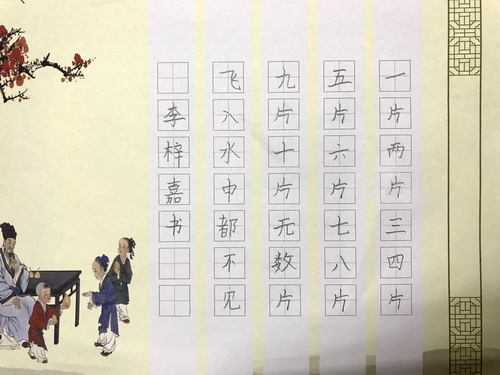 一片两片三四片
五片六片七八片
九片十片无数片
飞入水中都不见
李梓嘉书